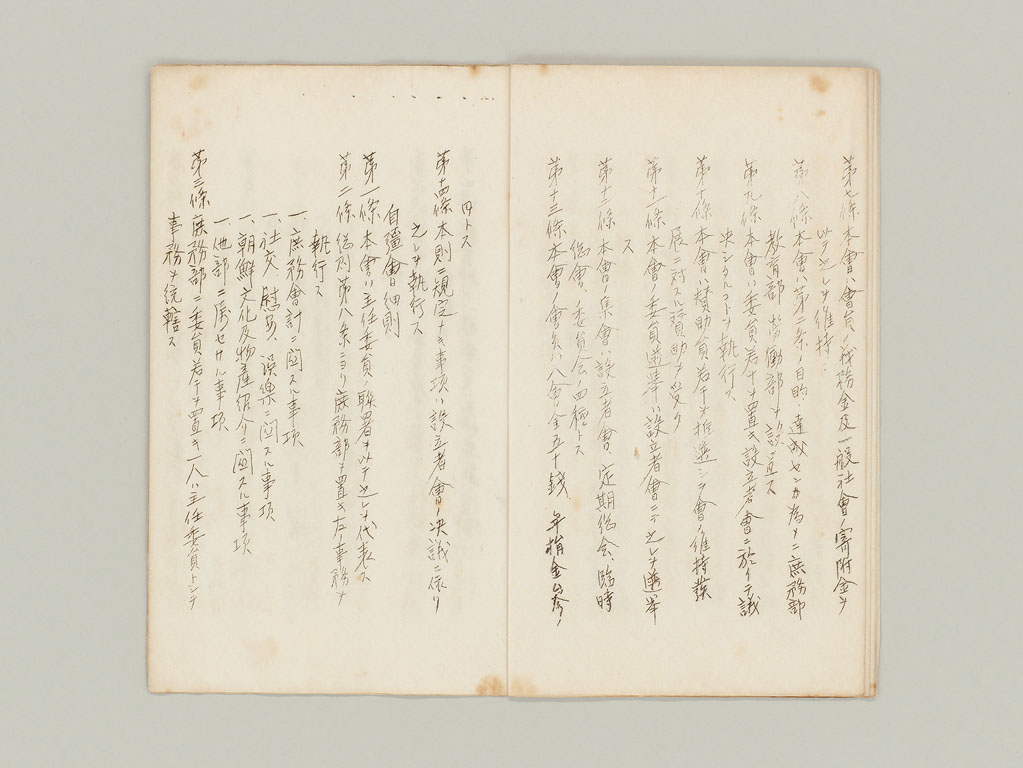 第七條 本會ハ會員ノ義務金及一般社會ノ寄附金ヲ
以テ之レヲ維持ス
第八條 本會ハ第二条ノ目的ヲ達成センカ為メニ庶務部
教育部、労働部ヲ設置ス
第九條 本會ハ委員若干ヲ置キ設立者會ニ於イテ議
決シタルコトヲ執行ス
第十條 本會ハ賛助員若干ヲ推選シテ會ノ維持發
展ニ対スル賛助ヲ受ク
第十一條 本會ノ委員選挙ハ設立者會ニテ之レヲ選挙
ス
第十二條 本會ノ集會ハ設立者會、定期総会、臨時
総會、委員会ノ四種トス
第十三條 本會ノ會費ハ入會金五十錢 年捐金参
円トス
第十四條 本則ニ規定ナキ事項ハ設立者會ノ決議ニ依リ
之レヲ執行ス
自彊會細則
第一條 本會ハ主任委員ノ聯署ヲ以テ之レヲ代表ス
第二條 総則第八条ニヨリ庶務部ヲ置キ左ノ事務ヲ
執行ス
一、庶務會計ニ関スル事項
一、社交、慰安、娯楽ニ関スル事項
一、朝鮮文化及物產紹介ニ関スル事項
一、他部ニ属セサル事項
第三條 庶務部ニ委員若干ヲ置キ一人ハ主任委員トシテ
事務ヲ統轄ス